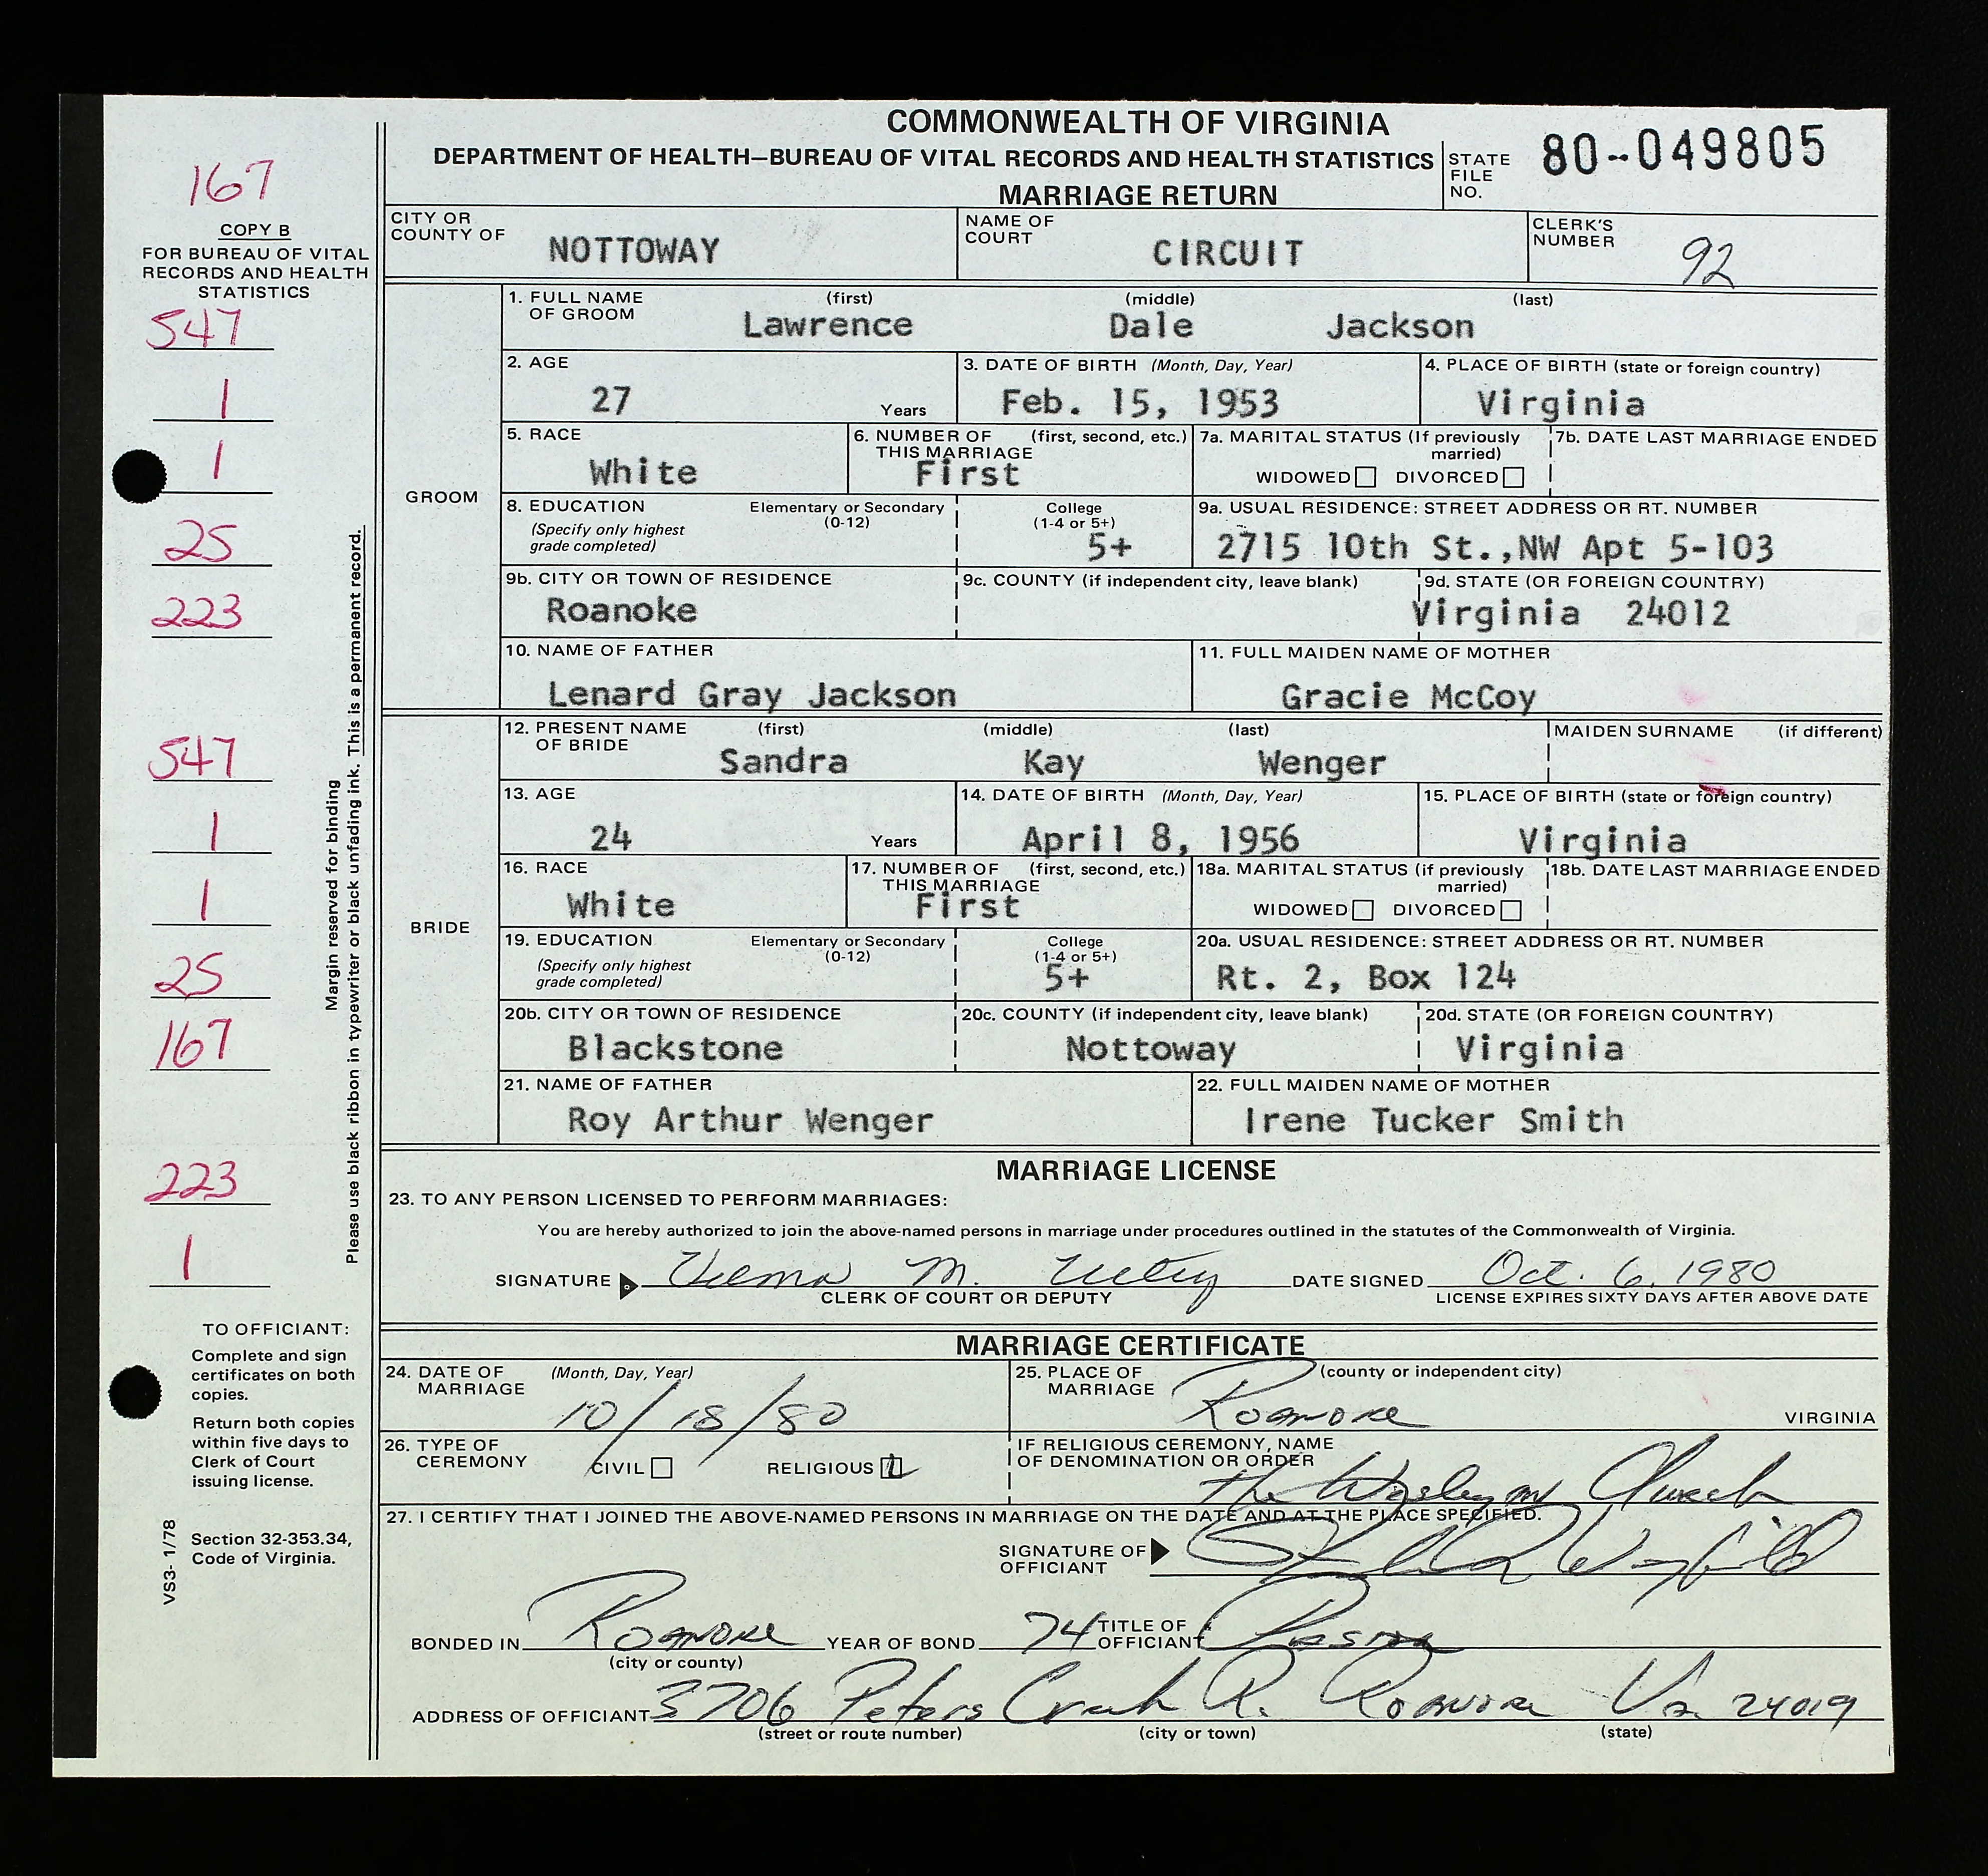 COMMONWEALTH OF VIRGINIA
DEPARTMENT OF HEALTH—BUREAU OF VITAL RECORDS AND HEALTH STATISTICS
MARRIAGE RETURN
STATE FILE NO. 80--049805
167
COPY B
FOR BUREAU OF VITAL
RECORDS AND HEALTH
STATISTICS
547
1
1
25
223
547
1
1
25
167
223
1
Margin reserved for binding
Please use black ribbon in typewriter or black unfading ink. This is a permanent record.
TO OFFICIANT:
Complete and sign
certificates on both
copies.
Return both copies
within five days to
Clerk of Court
issuing license.
Section 32-353.34,
Code of Virginia.
VS3- 1/78
CITY OR COUNTY OF NOTTOWAY
NAME OF COURT CIRCUIT
CLERK'S NUMBER 92
GROOM
1. FULL NAME OF GROOM (first) (middle) (last)
Lawrence Dale Jackson
2. AGE 27 Years
3. DATE OF BIRTH (Month, Day, Year) Feb. 15, 1953
4. PLACE OF BIRTH (state or foreign country) Virginia
5. RACE White
6. NUMBER OF THIS MARRIAGE (first, second, etc.) First
7a. MARITAL STATUS (If previously married) WIDOWED DIVORCED
7b. DATE LAST MARRIAGE ENDED
8. EDUCATION (Specify only highest grade completed) Elementary or Secondary (0-12) College (1-4 or 5+) 5+
9a. USUAL RESIDENCE: STREET ADDRESS OR RT. NUMBER 2715 10th St.,NW Apt 5-103
9b. CITY OR TOWN OF RESIDENCE Roanoke
9c. COUNTY (if independent city, leave blank)
9d. STATE (OR FOREIGN COUNTRY) Virginia 24012
10. NAME OF FATHER Lenard Gray Jackson
11. FULL MAIDEN NAME OF MOTHER Gracie McCoy
BRIDE
12. PRESENT NAME OF BRIDE (first) (middle) (last) MAIDEN SURNAME (if different)
Sandra Kay Wenger
13. AGE 24 Years
14. DATE OF BIRTH (Month, Day, Year) April 8, 1956
15. PLACE OF BIRTH (state or foreign country) Virginia
16. RACE White
17. NUMBER OF THIS MARRIAGE (first, second, etc.) First
18a. MARITAL STATUS (if previously married) WIDOWED DIVORCED
18b. DATE LAST MARRIAGE ENDED
19. EDUCATION (Specify only highest grade completed) Elementary or Secondary (0-12) College (1-4 or 5+) 5+
20a. USUAL RESIDENCE: STREET ADDRESS OR RT. NUMBER Rt. 2, Box 124
20b. CITY OR TOWN OF RESIDENCE Blackstone
20c. COUNTY (if independent city, leave blank) Nottoway
20d. STATE (OR FOREIGN COUNTRY) Virginia
21. NAME OF FATHER Roy Arthur Wenger
22. FULL MAIDEN NAME OF MOTHER Irene Tucker Smith
MARRIAGE LICENSE
23. TO ANY PERSON LICENSED TO PERFORM MARRIAGES:
You are hereby authorized to join the above-named persons in marriage under procedures outlined in the statutes of the Commonwealth of Virginia.
SIGNATURE M. DATE SIGNED Oct. 6, 1980
CLERK OF COURT OR DEPUTY LICENSE EXPIRES SIXTY DAYS AFTER ABOVE DATE
MARRIAGE CERTIFICATE
24. DATE OF MARRIAGE (Month, Day, Year) 10/18/80
25. PLACE OF MARRIAGE (county or independent city) Roanoke VIRGINIA
26. TYPE OF CEREMONY CIVIL RELIGIOUS
IF RELIGIOUS CEREMONY, NAME OF DENOMINATION OR ORDER The Wesleyan Church
27. I CERTIFY THAT I JOINED THE ABOVE-NAMED PERSONS IN MARRIAGE ON THE DATE AND AT THE PLACE SPECIFIED.
SIGNATURE OF OFFICIANT
BONDED IN Roanoke YEAR OF BOND 74 TITLE OF OFFICIANT Pastor
(city or county)
ADDRESS OF OFFICIANT 3706 Peters Creek R. Roanoke Va. 24019
(street or route number) (city or town) (state)